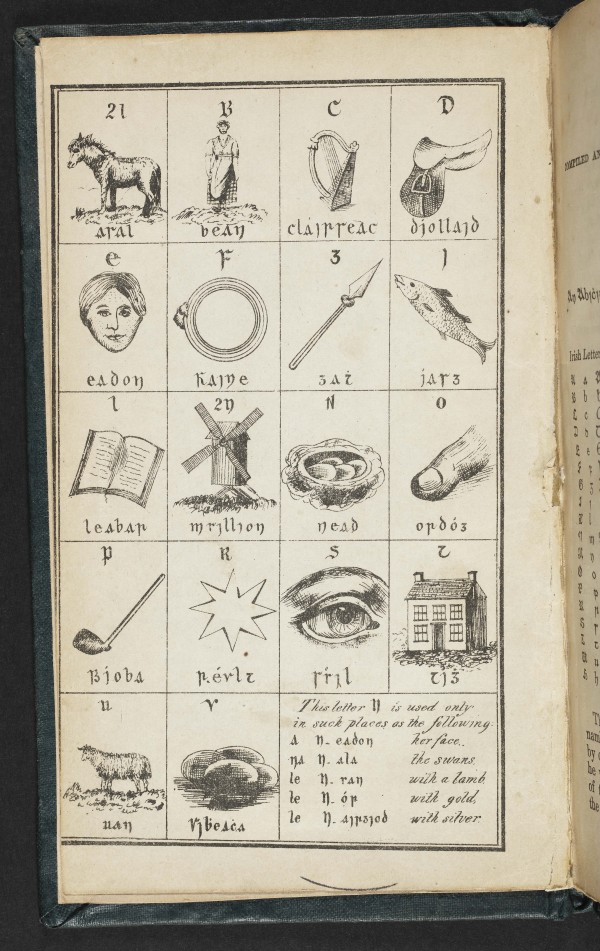 A B C D
asal bean cláirseac diollaid
E F G I
eadon faine gaṫ iasg
L M N O
leabar mvillion nead ordóg
P R S T
Pioba révlt svil Tig
U V
uan Vibeaċa
This letter N is used only
in such places as the following:
a n-eadon her face.
na n-ala the swans.
le n-uan with a lamb.
le n-ór with gold.
le n-airgiod with silver.
COMPILED
Irish